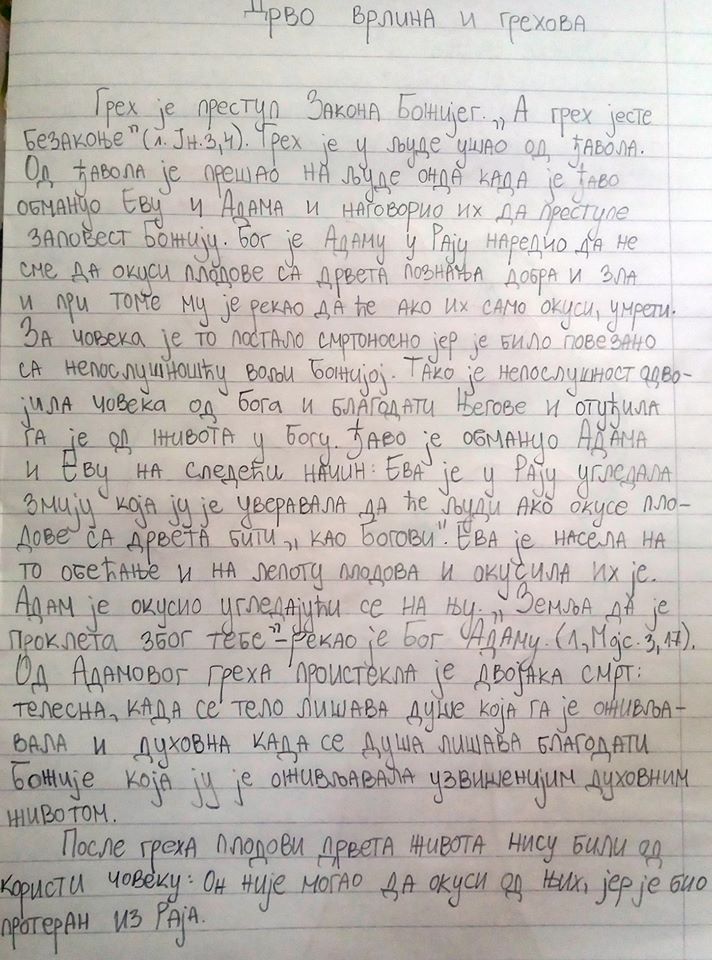 Дрво врлина и грехова
Грех је преступ Закона Божијег. „А грех јесте
безакоње" (1. Јн. 3,4). Грех је у људе ушао од ђавола.
Од ђавола је прешао на људе онда када је ђаво
обмануо Еву и Адама и наговорио их да преступе
заповест Божију. Бог је Адаму у Рају наредио да не
сме да окуси плодове са дрвета познања добра и зла
и при томе му је рекао да ће ако их само окуси, умрети.
За човека је то постало смртоносно јер је било повезано
са непослушношћу вољи Божијој. Тако је непослушност одво-
јила човека од Бога и благодати Његове и отуђила
га је од живота у Богу. Ђаво је обмануо Адама
и Еву на следећи начин: Ева је у Рају угледала
змију која ју је уверавала да ће људи ако окусе пло-
дове са дрвета бити „као Богови". Ева је насела на
то обећање и на лепоту плодова и окусила их је.
Адам је окусио угледајући се на њу. „Земља да је
проклета због тебе" - рекао је Бог Адаму. (1, Мојс. 3, 17).
Од Адамовог греха проистекла је двојака смрт:
телесна, када се тело лишава душе која га је оживља-
вала и духовна када се душа лишава благодати
Божије која ју је оживљавала узвишенијим духовним
животом.
После греха плодови дрвета живота нису били од
користи човеку: Он није могао да окуси од њих, јер је био
протеран из Раја.